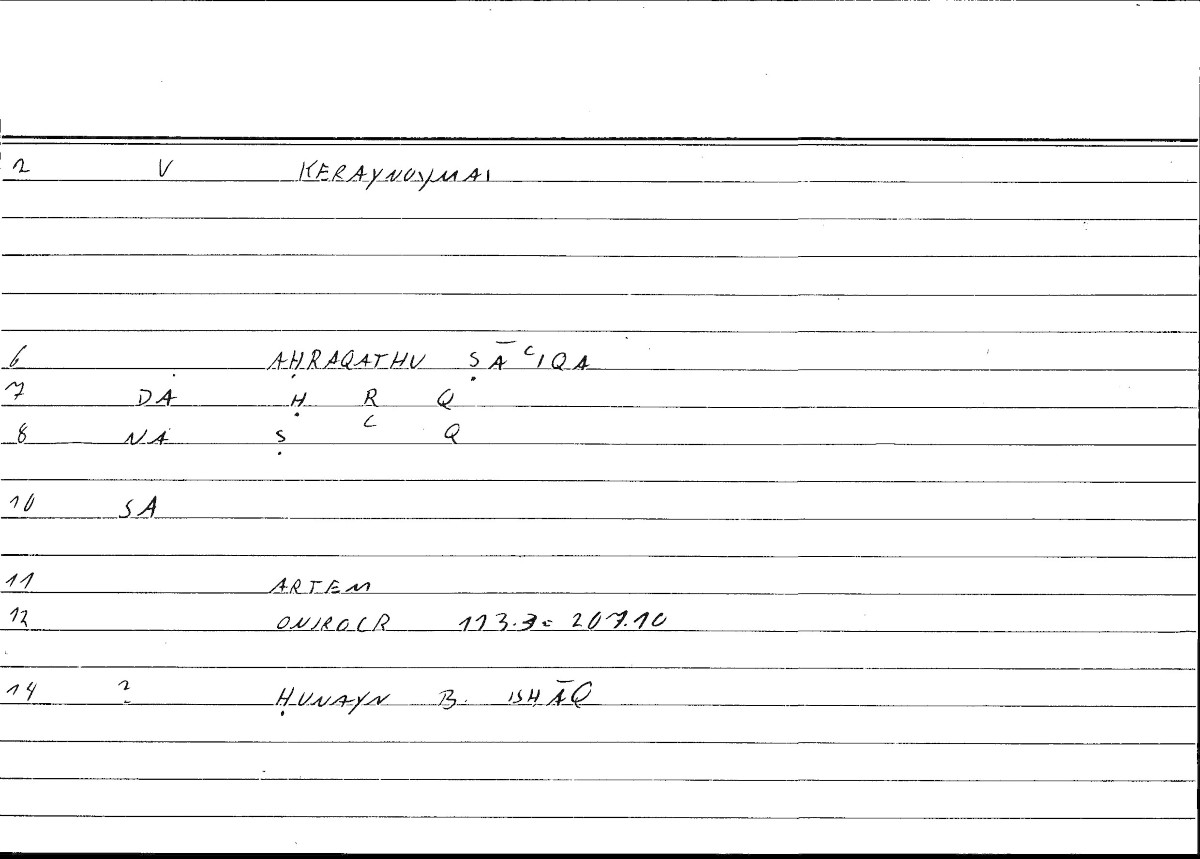 2 V KERAYNOYMAI
6 AḤRAQATHU ṢĀʿIQA
7 DA Ḥ R Q
8 NA Ṣ ʿ Q
10 SA
11 ARTEM
12 ONIROCR 113.3 = 207.10
14 ? ḤUNAYN B. ISHĀQ